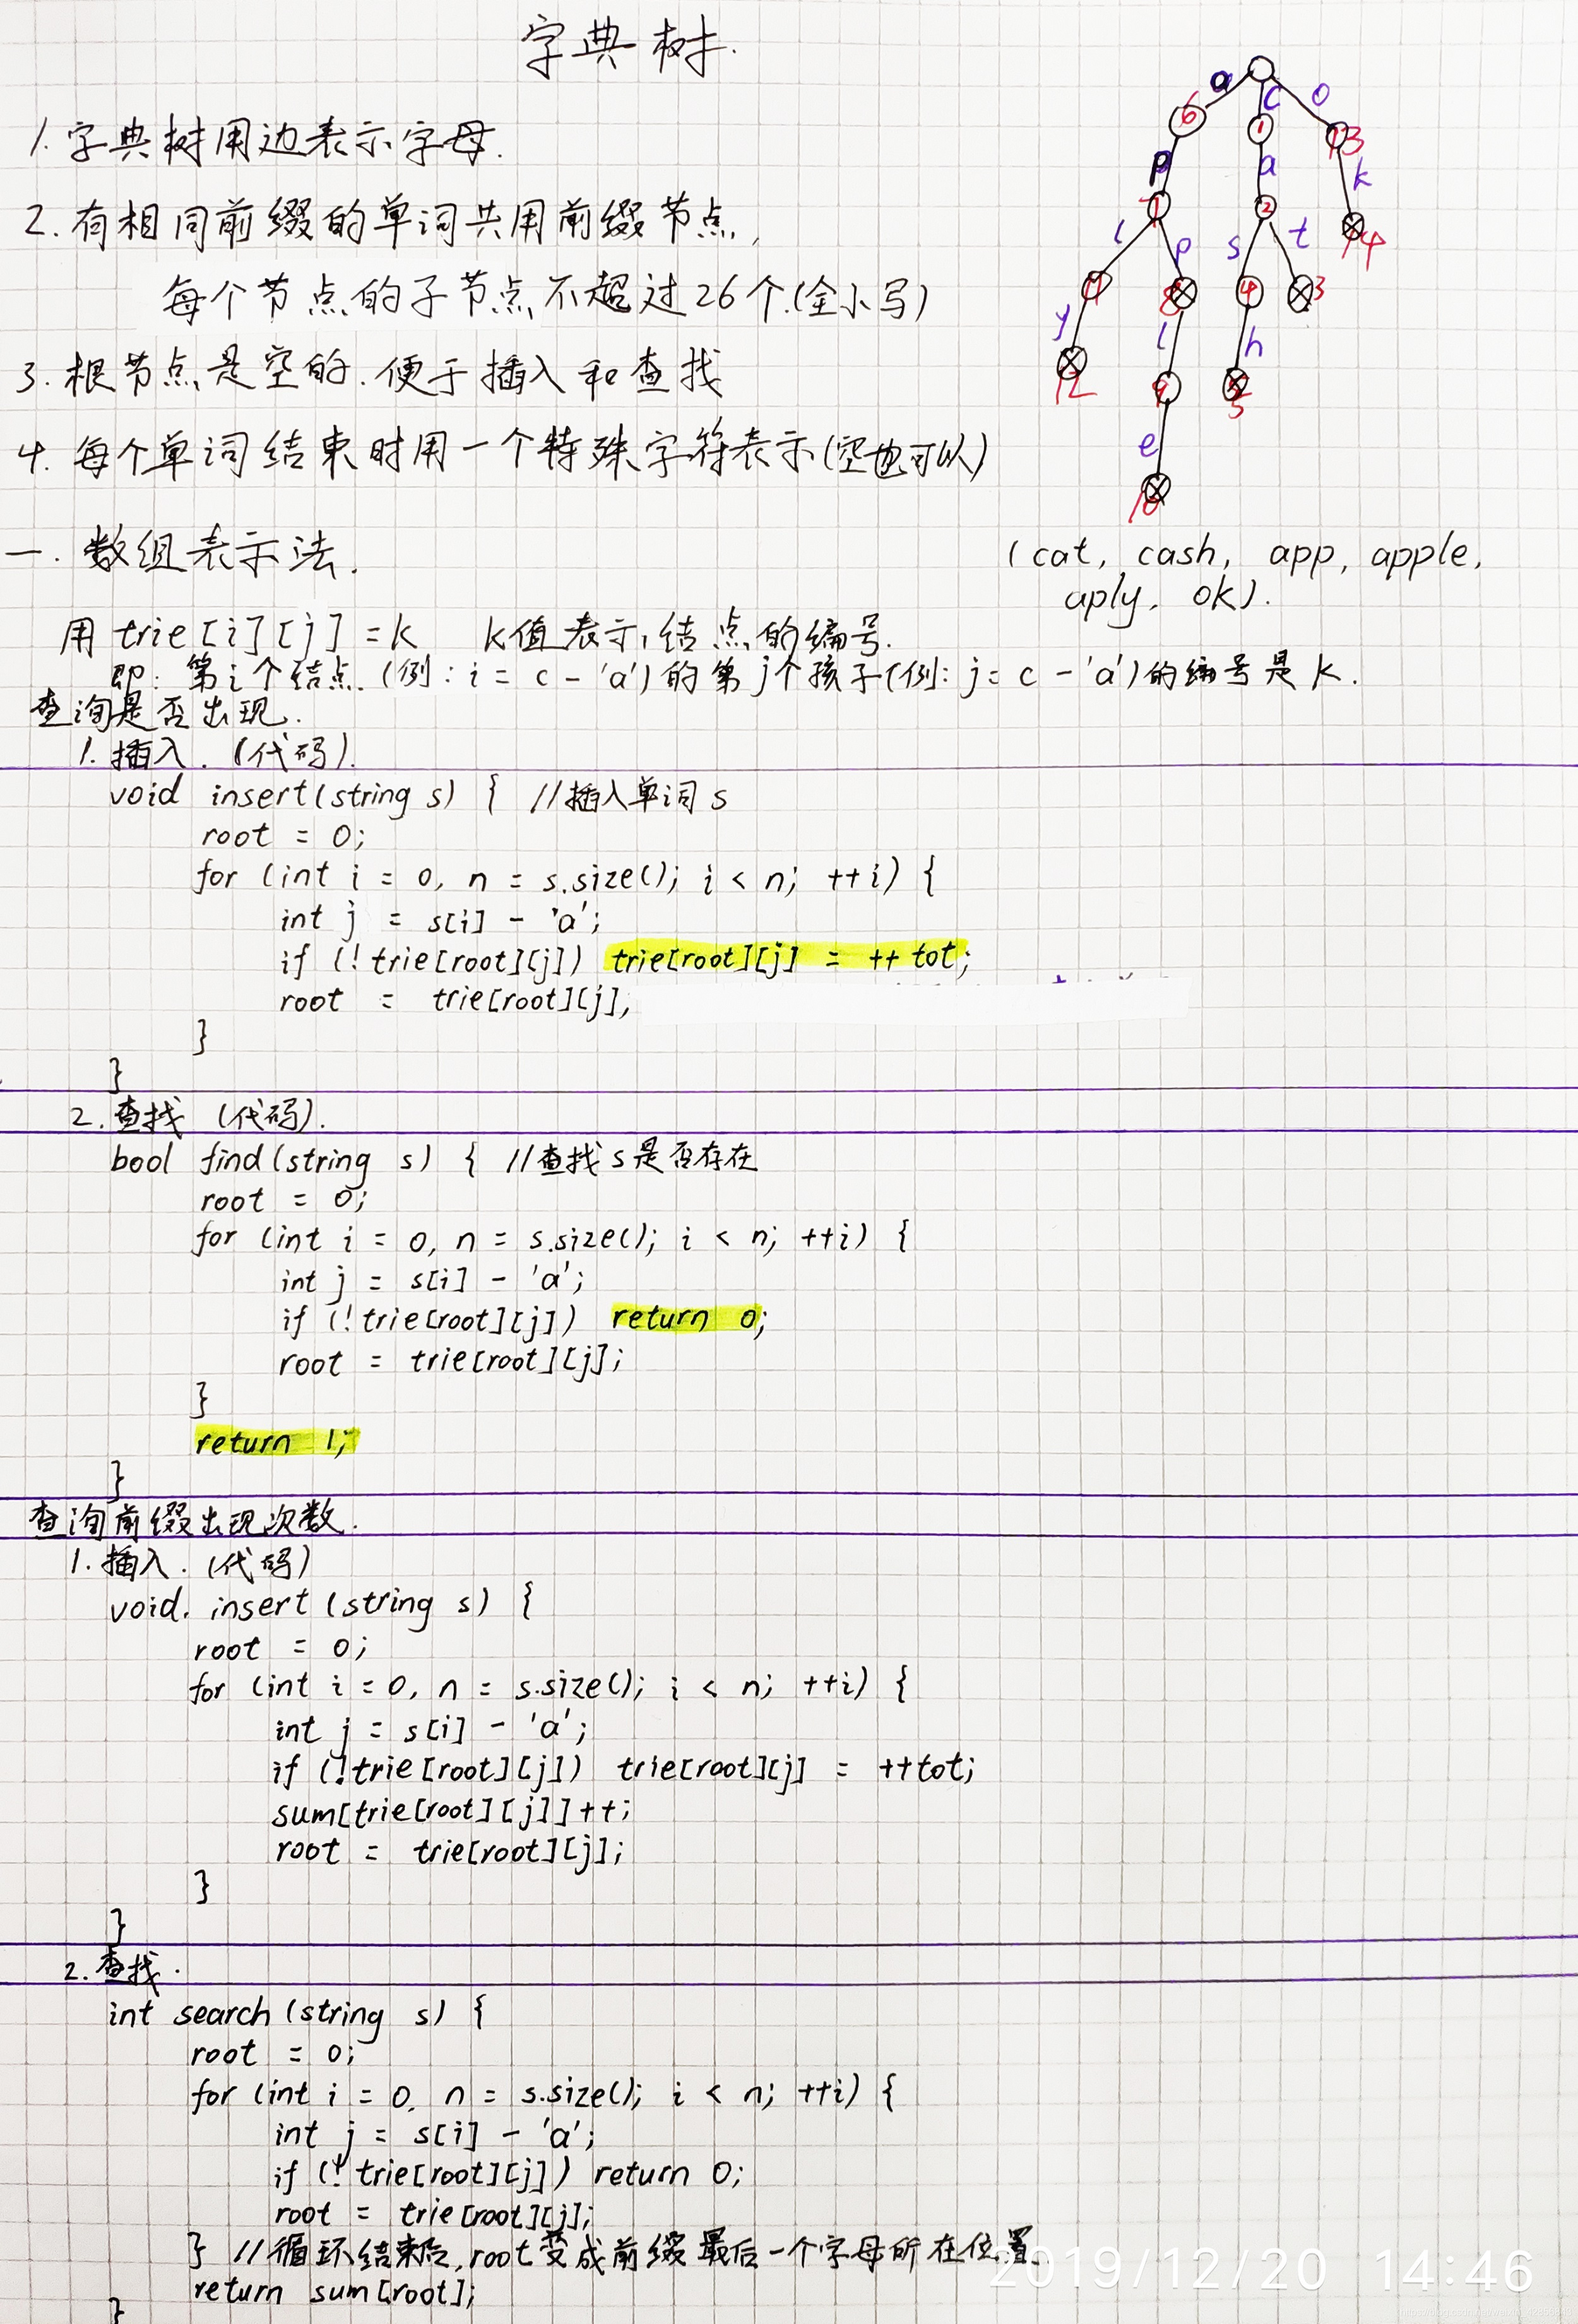 字典树.
1. 字典树用边表示字母.
2. 有相同前缀的单词共用前缀节点,
每个节点的子节点不超过26个.(全小写)
3. 根节点是空的.便于插入和查找
4. 每个单词结束时用一个特殊字符表示(空也可以)
a c o
6 1 13
p a k
7 2 14
l p s t
11 8 4 3
y l h
12 9 5
e
10
(cat, cash, app, apple,
aply, ok).
一. 数组表示法.
用 trie[i][j] = k k值表示结点的编号.
即: 第i个结点.(例: i = c - 'a')的第j个孩子(例: j = c - 'a')的编号是k.
查询是否出现.
1. 插入. (代码).
void insert(string s) { //插入单词s
root = 0;
for (int i = 0, n = s.size(); i < n; ++i) {
int j = s[i] - 'a';
if (! trie[root][j]) trie[root][j] = ++ tot;
root = trie[root][j];
}
}
2. 查找 (代码).
bool find(string s) { //查找s是否存在
root = 0;
for (int i = 0, n = s.size(); i < n; ++i) {
int j = s[i] - 'a';
if (!trie[root][j]) return 0;
root = trie[root][j];
}
return 1;
}
查询前缀出现次数.
1. 插入. (代码)
void. insert (string s) {
root = 0;
for (int i = 0, n = s.size(); i < n; ++i) {
int j = s[i] - 'a';
if (!trie[root][j]) trie[root][j] = ++tot;
sum[trie[root][j]]++;
root = trie[root][j];
}
}
2. 查找.
int search (string s) {
root = 0;
for (int i = 0, n = s.size(); i < n; ++i) {
int j = s[i] - 'a';
if (! trie[root][j]) return 0;
root = trie[root][j];
} //循环结束后,root变成前缀最后一个字母所在位置.
return sum[root];
}
2019/12/20 14:46